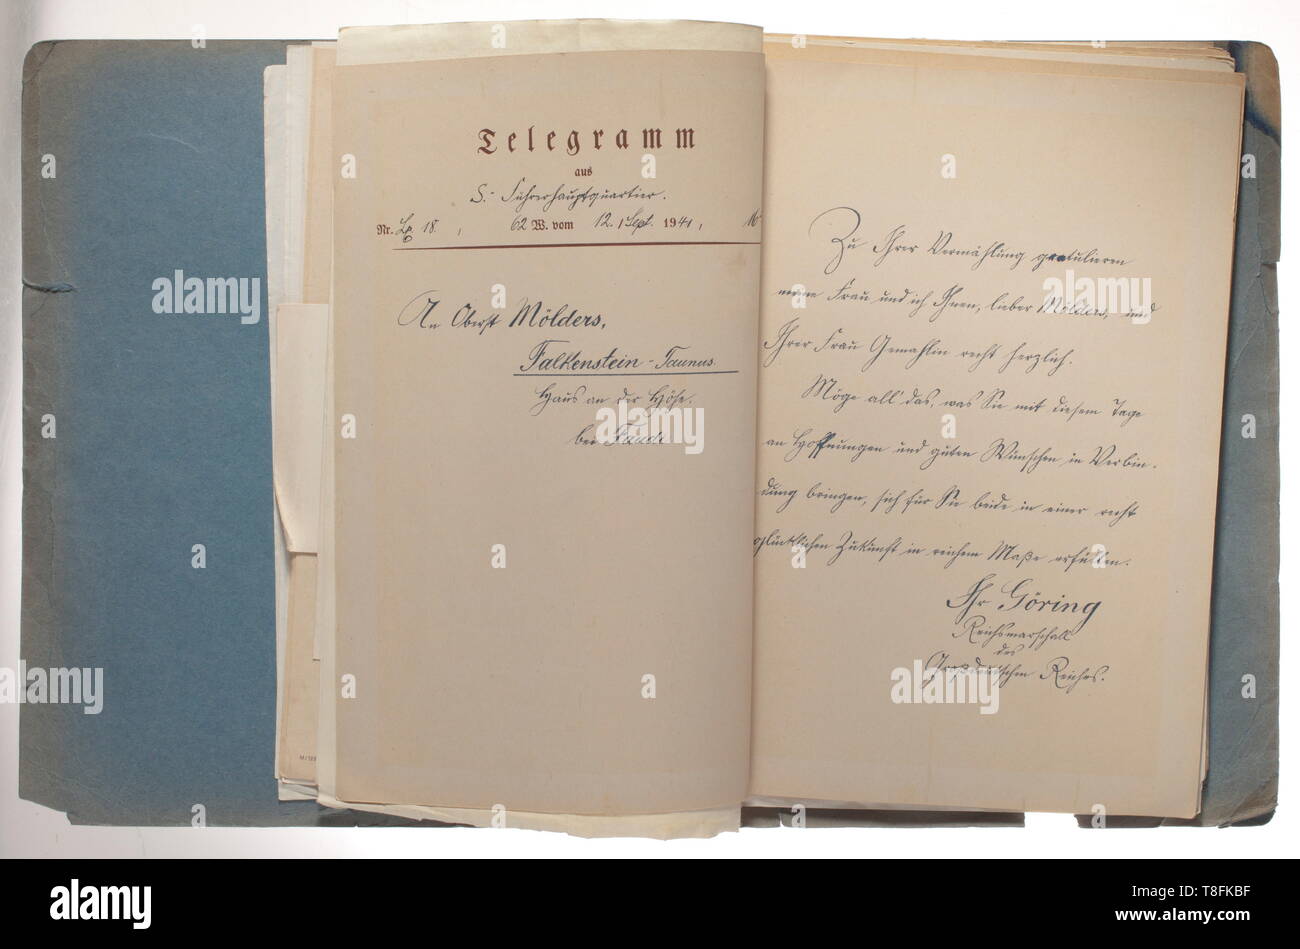 Telegramm
aus
S.- Führerhauptquartier.
Nr. 18, 62 W. vom 12. Sept. 1941, 16
An Oberst Mölders,
Falkenstein-Taunus
Haus an der Höhe.
bei
Zu Ihrer Vermählung gratulieren
meine Frau und ich Ihnen, lieber Mölders, und
Ihrer Frau Gemahlin recht herzlich.
Möge all' das, was Sie mit diesem Tage
an Hoffnungen und guten Wünschen in Verbin-
dung bringen, sich für Sie beide in einer recht
glücklichen Zukunft in reichem Maße erfüllen.
Ihr Göring
Reichsmarschall
des
Großdeutschen Reiches.
alamy
alamy
Image ID: T8FKBF
www.alamy.com